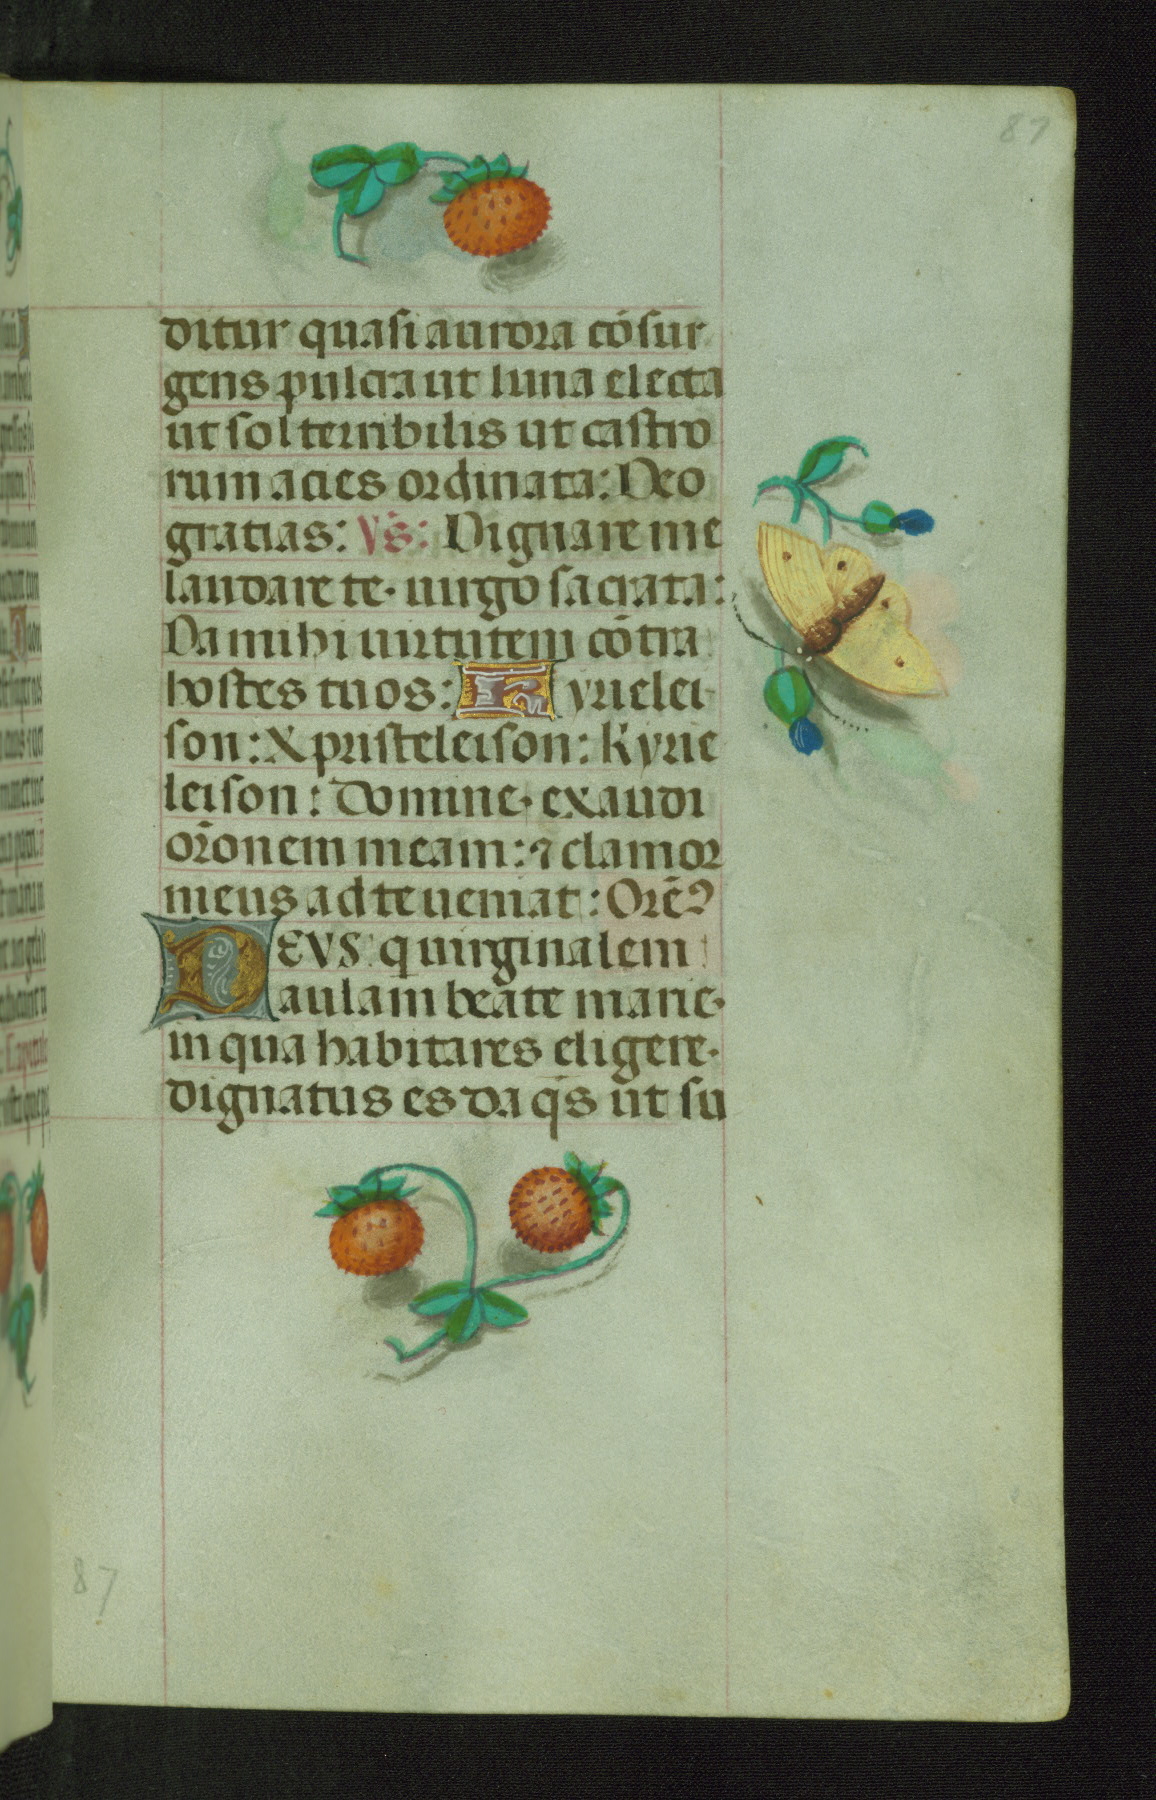 87
ditur quasi aurora cōsur
gens pulcra ut luna electa
ut sol terribilis ut castro
rum acies ordinata: Deo
gratias: Vs̄: Dignare me
laudare te· uirgo sacrata:
Da mihi uirtutem cōtra
hostes tuos: Kyrielei
son: Xpristeleison: Kyrie
leison: Domine· exaudi
orōnem meam: ⁊ clamor
meus ad te ueniat: Orēꝰ
DEVS q uirginalem
aulam beāte marie·
in qua habitares eligere·
dignatus es da qs̄ ut su
87